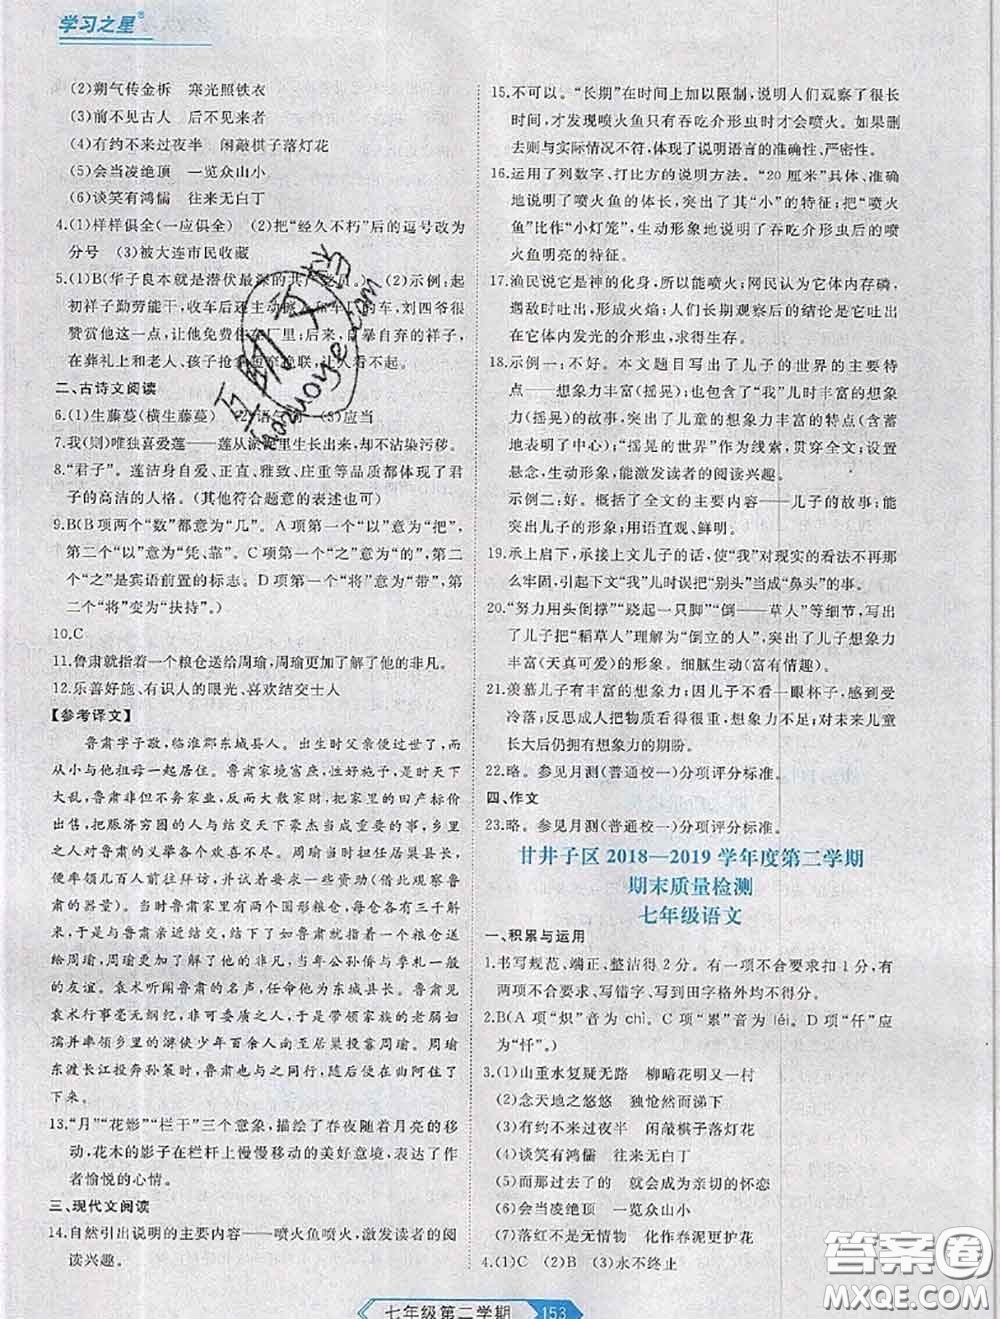 学习之星®
(2)朔气传金柝　寒光照铁衣
(3)前不见古人　后不见来者
(4)有约不来过夜半　闲敲棋子落灯花
(5)会当凌绝顶　一览众山小
(6)谈笑有鸿儒　往来无白丁
4.(1)样样俱全(一应俱全)　(2)把“经久不朽”后的逗号改为
分号　(3)被大连市民收藏
5.(1)B(华子良本就是潜伏最深的共产党人。)　(2)示例:起
初祥子勤劳能干,收车后还主动
赞赏他这点,让他免费住在厂里;后来,自暴自弃的祥子,
在葬礼上和老人、孩子抢着
二、古诗文阅读
6.(1)生藤蔓(横生藤蔓)　(2)语气　(3)应当
7.我(则)唯独喜爱莲——莲从淤泥里生长出来,却不沾染污秽。
8.“君子”。莲洁身自爱、正直、雅致、庄重等品质都体现了君
子的高洁的人格。(其他符合题意的表述也可)
9.B(B项两个“数”都意为“几”。A项第一个“以”意为“把”,
第二个“以”意为“凭、靠”。C项第一个“之”意为“的”,第二
个“之”是宾语前置的标志。D项第一个“将”意为“带”,第
二个“将”变为“扶持”。)
10.C
11.鲁肃就指着一个粮仓送给周瑜,周瑜更加了解了他的非凡。
12.乐善好施、有识人的眼光、喜欢结交士人
【参考译文】
鲁肃字子敬,临淮郡东城县人。出生时父亲就去世了,
从小与他祖母一起居住。鲁肃家境富庶,……是时天下
大乱,鲁肃非但不务家业,反而大散家财,把家里的田产标价
出售,把赈济穷困的人与结交天下豪杰作为主要事务,乡里
之人对鲁肃的义举各个都欢心。周瑜做居巢县长,
带领几百人前往拜访,并请求一些资助(借此观察鲁肃
的器量)。鲁肃家里有两个圆形粮仓,每仓装有三千斛
米,鲁肃就指着其中的一个粮仓送给
周瑜,
他的不凡,
袁术听闻鲁肃的名声,任他为东城县长。鲁肃见
袁术行事毫无纲纪,
孺并率领乡里的游侠少年百余人南到居巢投靠周瑜。周瑜
东渡长江投奔孙策时,鲁肃也与之同行,把家留在曲阿住了
下来。
13.“月”“花影”“栏干”三个意象,描绘了春夜随着月亮的移
动,花木的影子在栏杆上慢慢移动的美好意境,表达了作
者愉悦的心情。
三、现代文阅读
14.自然引出说明的主要内容——喷火鱼喷火,激发读者的阅
读兴趣。
15.不可以。“长期”在时间上加以限制,说明人们观察了很长
时间,才发现喷火鱼只有吞吃介形虫时才喷火。如果删
去则与实际情况不符,体现了说明语言的准确性、严密性。
16.运用了列数字、打比方的说明方法。“20厘米”具体、准确
地说明了喷火鱼的体长,突出了其“小”的特征;把“喷火
鱼”比作“小灯笼”,生动形象地说明了吞吃介形虫后喷火
鱼明亮的特征。
17.渔民说它是神的化身,所以能喷火;网民认为它体内有磷,
遇敌放出,形成火焰;人们长期观察后的结论是它吐出
在它体内发光的介形虫,求得生存。
18.示例一:不好。本文题目写出了儿子的世界的主要特
点——想象力丰富(摇晃);也包含了“我”儿时丰富的想象
力(摇晃)的故事,突出了儿童的想象力丰富的形象;(含蓄
地表明了中心);“摇晃的世界”作为线索,贯穿全文;设置
悬念,生动形象,能激发读者的阅读兴趣。
示例二:好。概括了全文的主要内容——儿子的故事;能
突出儿子的形象;用语直观、鲜明。
19.承上启下,承接上文儿子的话,使“我”对现实的看法不再那
么牢固,引起下文“我”儿时误把“别头”当成“鼻头”的事。
20.“努力用头倒撑”“跷起一只脚”“倒——草人”等细节,写出
了儿子把“稻草人”理解为“倒立的人”,突出了儿子想象力
丰富(天真可爱)的形象。细腻生动(富有情趣)。
21.羡慕儿子有丰富的想象力;因儿子不看一眼杯子而感受到
冷落;反思成人把有用看得很重,想象力不足;对未来儿童
长大后仍拥有想象力的期盼。
22.略。参见月测(普通校一)分项评分标准。
四、作文
23.略。参见月测(普通校一)分项评分标准。
甘井子区2018—2019学年度第二学期
期末质量检测
七年级语文
一、积累与运用
1.书写规范、端正、整洁得2分。有一项不合要求扣1分,有
两项不合要求、写错字、写到田字格外均不得分。
2.B(A项“炽”音为chì。C项“累”音为léi。D项“仟”应
为“忏”。)
3.(1)山重水复疑无路　柳暗花明又一村
(2)念天地之悠悠　独怆然而涕下
(3)有约不来过夜半　闲敲棋子落灯花
(4)谈笑有鸿儒　往来无白丁
(5)而那过去了的　就会成为亲切的怀恋
(6)会当凌绝顶　一览众山小
(7)落红不是无情物　化作春泥更护花
4.(1)C　(2)B　(3)永不终止
七年级第二学期　153
答案圈
MXQE.COM